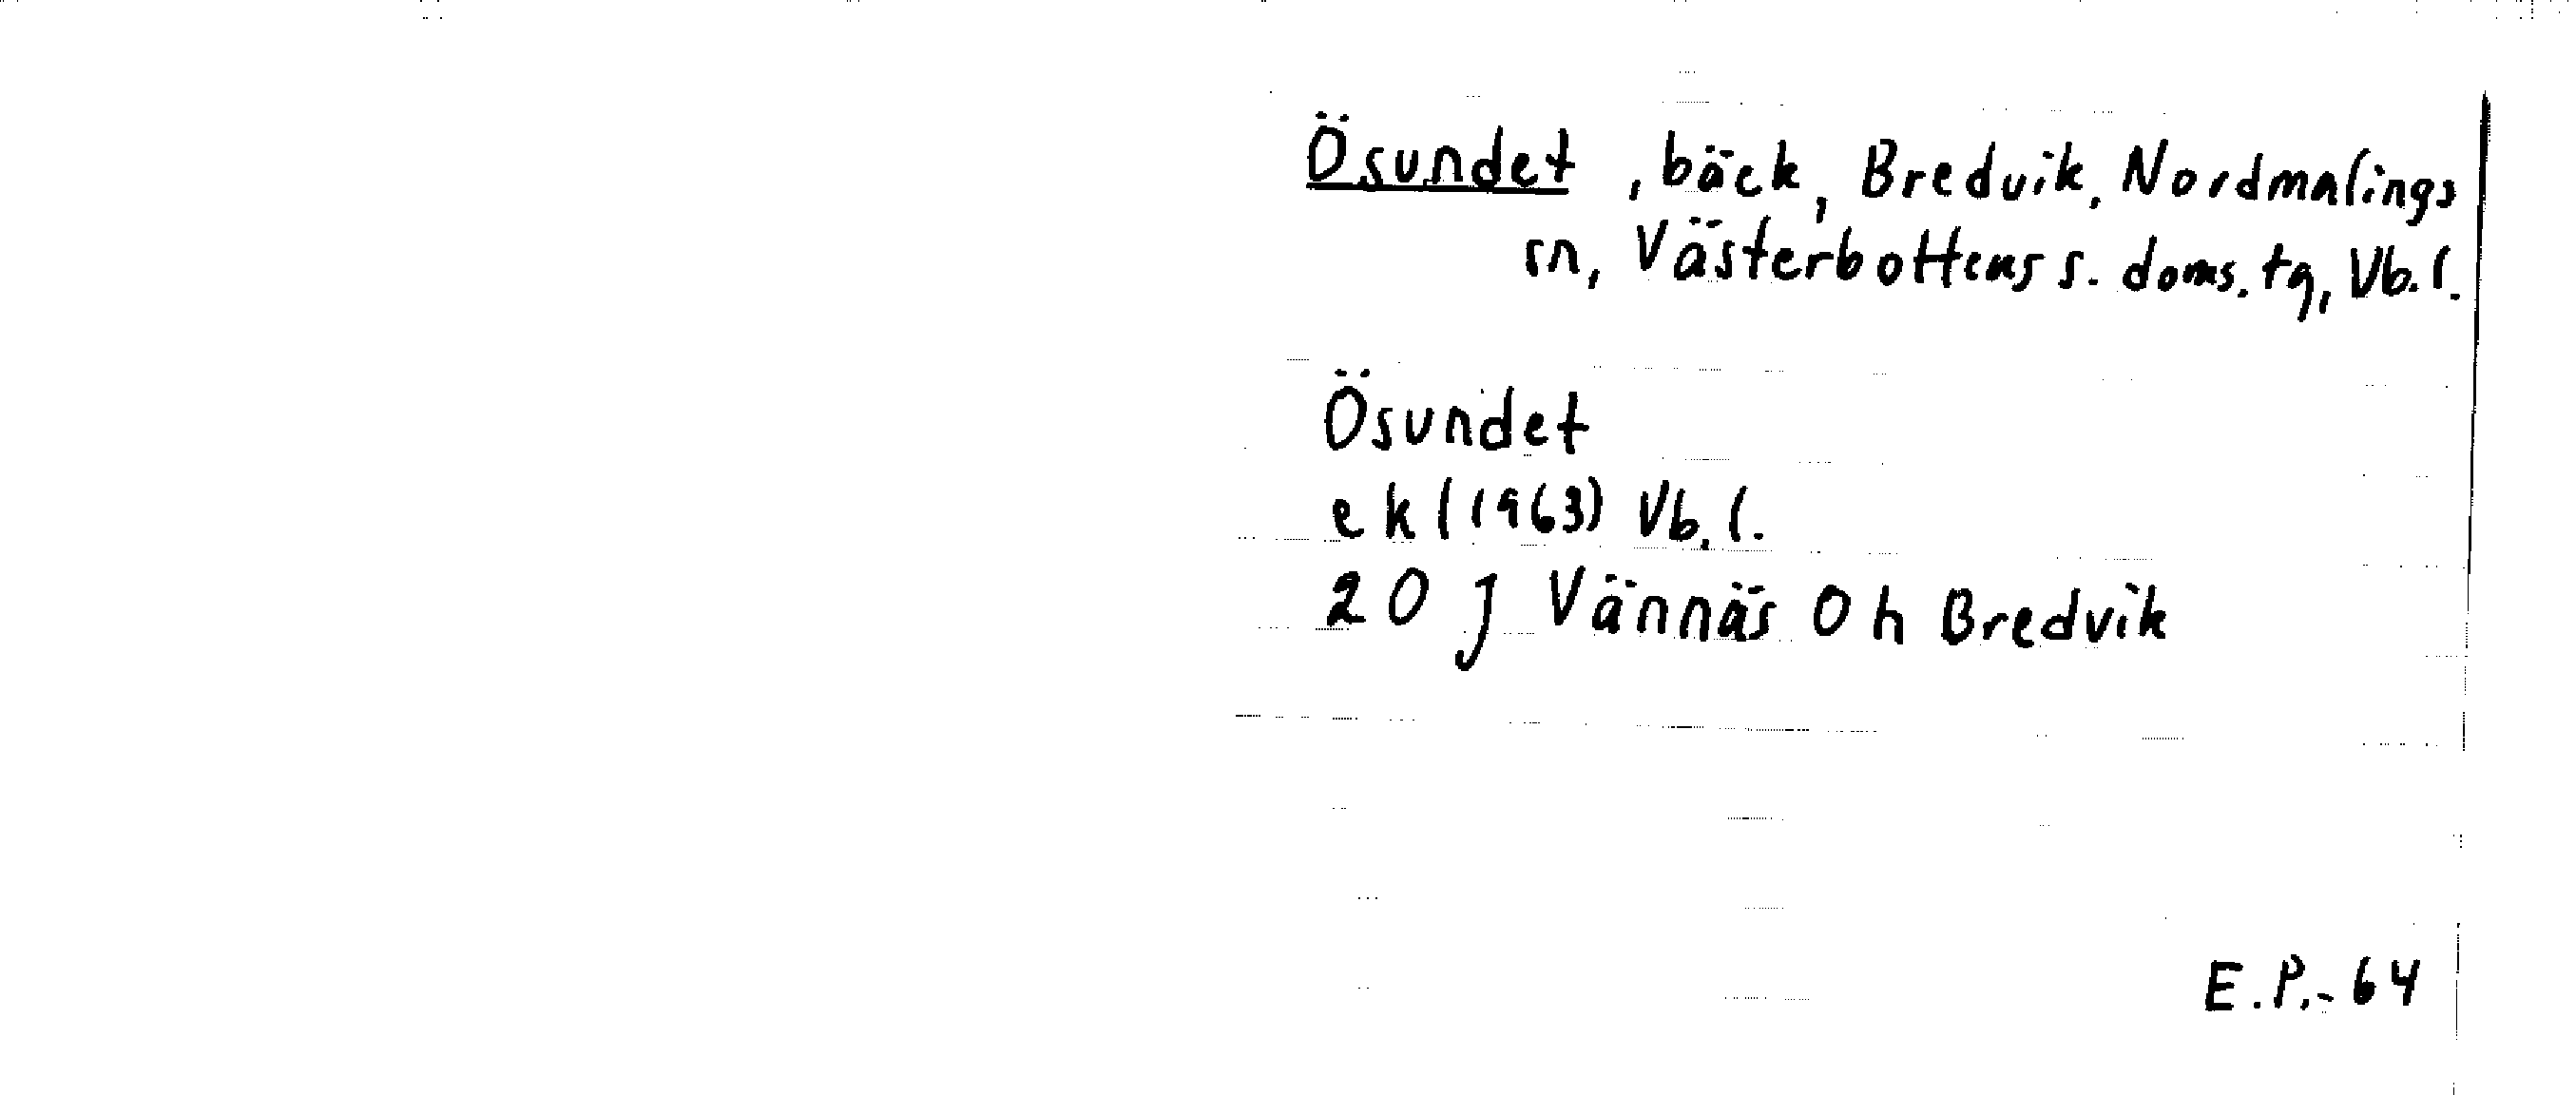 Ösundet, bäck, Bredvik, Nordmalings
sn, Västerbottens s. doms. tg, Vb. l.
Ösundet
ek (1963) Vb. l.
20 J Vännäs 0 h Bredvik
E.P.-64